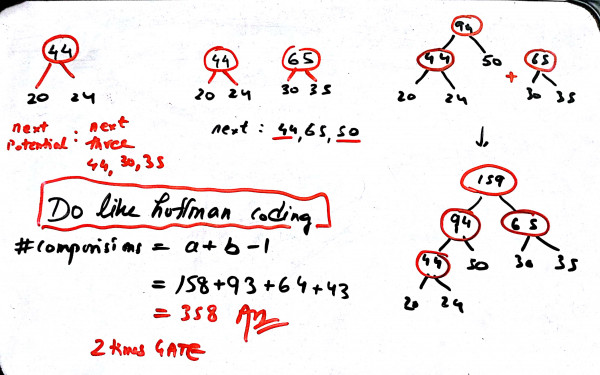 44
20 24
next next
Potential : three
44, 30, 35
44 65
20 24 30 35
next : 44, 65, 50
94
44 50 + 65
20 24 30 35
↓
159
94 65
44 50 30 35
20 24
Do like huffman coding
#comparisions = a+b-1
= 158+93+64+43
= 358 Ans
2 times GATE